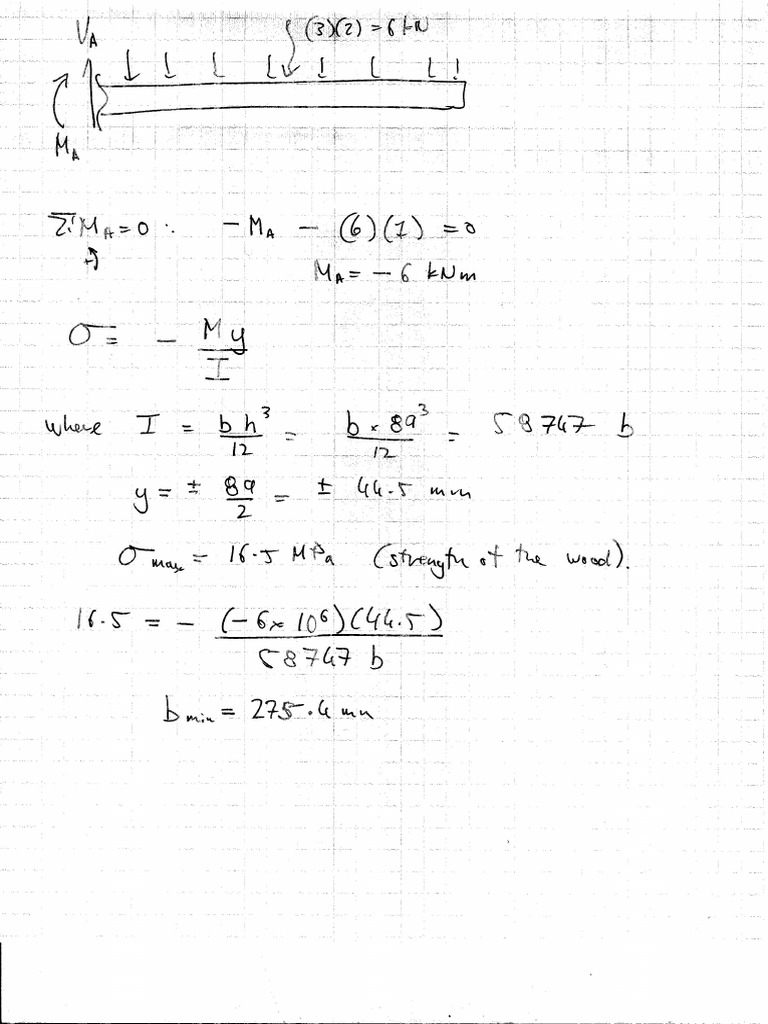 V_A (3)(2) = 6 kN
M_A
ΣM_A = 0 ∴ - M_A - (6)(1) = 0
+
M_A = - 6 kNm
σ = - My/I
where I = bh³/12 = b × 89³/12 = 58747 b
y = ± 89/2 = ± 44.5 mm
σ_max = 16.5 MPa (strength of the wood).
16.5 = - (-6 × 10⁶)(44.5)/58747 b
b_min = 275.4 mm